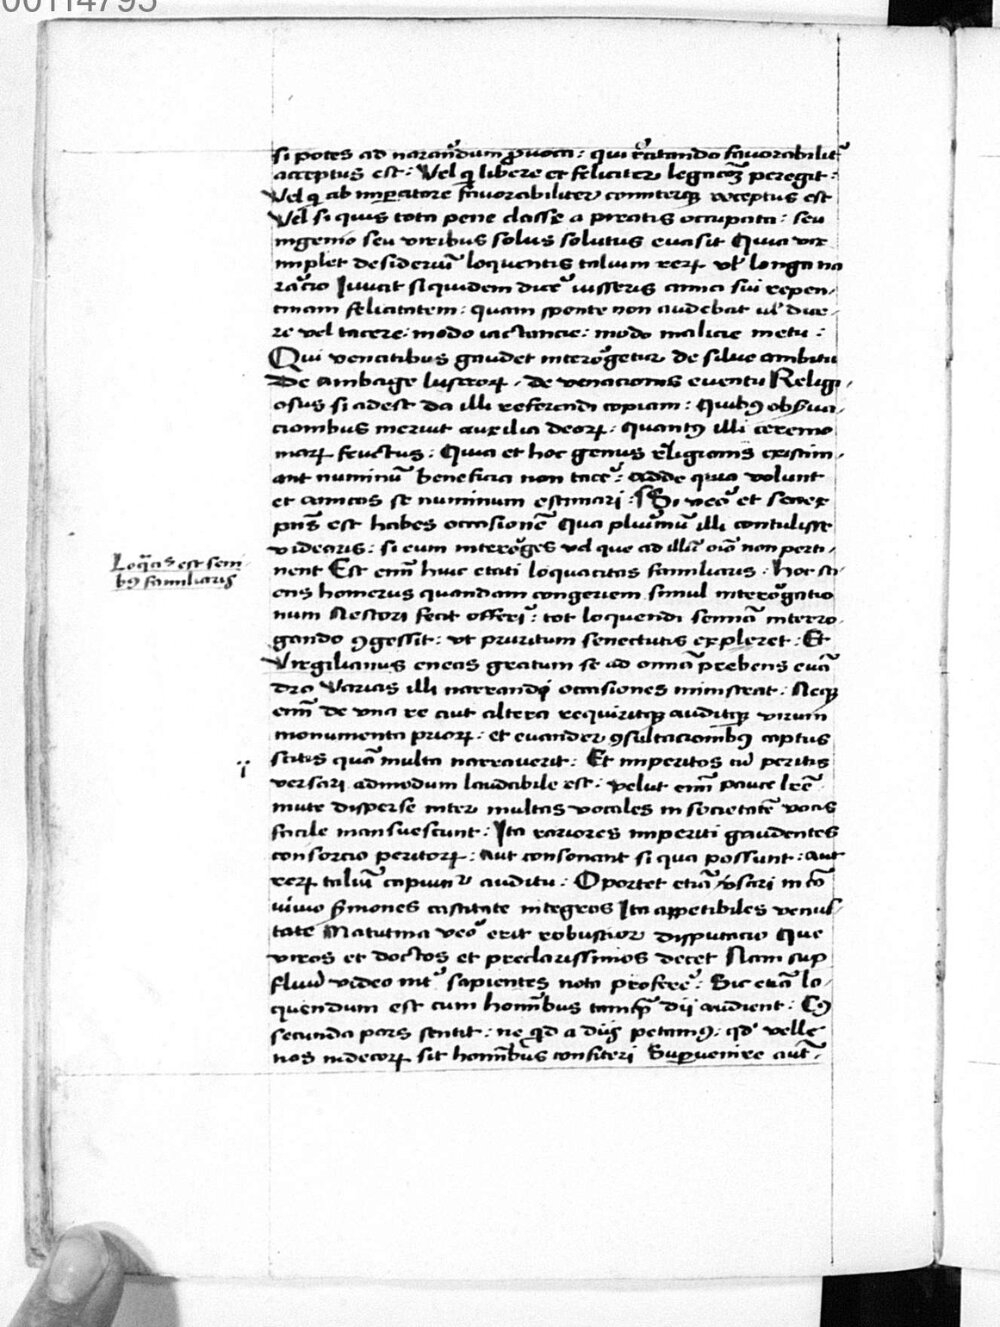 00114795
si potes ad narrãdum ꝓvoca: qui rẽcitando favorabilit̃
acceptus est: Vel q̃ libere et feliciter legacõꝫ peregit:
Vel q̃ ab imꝑatore favorabiliter comiterqꝫ acceptus est
Vel si quis tota pene classe a piratis occupata: seu
ingenio seu viribus solus solutus evasit Quia vix
implet desideriũ loquentis talium rerꝝ vł longa na
rac̃io Juvat siquidem dice᷑ iusseris amici sui repen-
tinam felicitatem: quam sponte non audebat ul᷑ dice-
re vel tacere: modo iactancie: modo malicie metu:
Qui venatibus gaudet inteꝛogetur de silve ambitu
De ambage lustroꝝ, de venacionis eventu Religi-
osus si adest da illi referendi copiam: Quibꝰ obs̃va-
cionibus meruit auxilia deoꝝ: quantꝰ illi ceremo
niaꝝ fructus: Quia et hoc genus rẽligionis existim-
ant numinũ beneficia non tace᷑: adde quia volunt
et amicos se numinum estimari: Si veõ et senex
pñs est habes occasionẽ qua pluimũ illi contulisse
videaris: si eum interõges vel que ad illũ oĩo non perti-
nent Est enĩ huic etati loquacitas familiaris: hoc sci
ens homerus quandam congeriem simul interõgatio
num Nestori fecit offerĩ: tot loquendi semiã interro-
gando ꝯgessit: ut pruritum senectutis expleret: Et
Virgilianus eneas gratum se ad omnia prebens euã
dro Varias illi narrandi occasiones ministrat: Neqꝫ
enĩ de una re aut altera requiritqꝫ auditqꝫ virum
monumenta prioꝝ: et evander ꝯsultacionibꝰ captus
scitis quã multa narraverit: Et imperitos cũ peritis
versari admodum laudabile est: velut enĩ pauce lr̃e
mute disperse inter multas vocales in societatẽ vocis
facile mansuescunt: Ita rariores imperiti gaudentes
consorcio peritoꝝ: Aut consonant si qua possunt: aut
rerꝝ taliũ capiunt᷑ auditu: Oportet etiã v̾sari in cõ
vivio s̾mones castitate integros Ita appetibiles venus-
tate Matutina veõ erit robustior disputacio Que
viros et doctos et preclarissimos decet Nam sup
fluũ video int᷑ sapientes nota proferẽ: Sic etiã lo-
quendum est cum hominibus tamꝗ̃ dij audient: Cꝰ
secunda pars sentit: ne qd a dijs petamꝰ: qd᷑ velle
nos indecoꝝ sit hominibus confiteri Supervenire aut̃-
Loq̃as est seni
bꝰ familiaris
ij